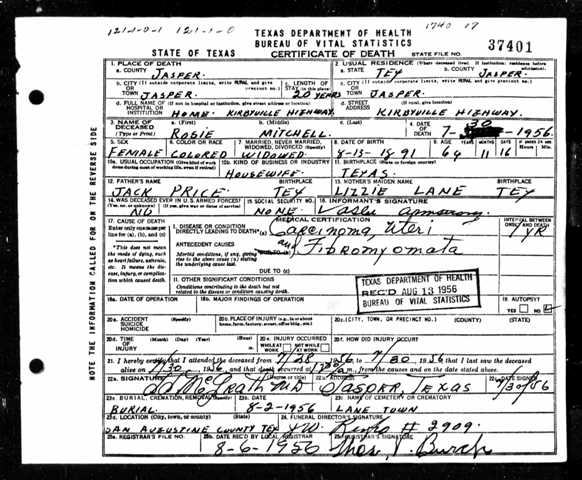 121-1-0-1 121-1-0
1740 17
TEXAS DEPARTMENT OF HEALTH
BUREAU OF VITAL STATISTICS
STATE OF TEXAS CERTIFICATE OF DEATH STATE FILE NO. 37401
1. PLACE OF DEATH 2. USUAL RESIDENCE (Where deceased lived. If institution: residence before
a. COUNTY JASPER. a. STATE TEX b. COUNTY JASPER.
b. CITY (If outside corporate limits, write RURAL and give c. LENGTH OF c. CITY (If outside corporate limits, write RURAL and give precinct no.)
OR TOWN JASPER. 20 YEARS TOWN JASPER.
d. FULL NAME OF (If not in hospital or institution, give street address or location) d. STREET (If rural, give location)
HOSPITAL OR INSTITUTION HOME. KIRBYVILLE HIGHWAY. ADDRESS KIRBYVILLE HIGHWAY.
3. NAME OF DECEASED a. (First) b. (Middle) c. (Last) 4. DATE OF DEATH 30
ROSIE MITCHELL. 7- -1956.
5. SEX 6. COLOR OR RACE 7. MARRIED, NEVER MARRIED, WIDOWED, DIVORCED (Specify) 8. DATE OF BIRTH 9. AGE YEARS MONTHS DAYS
FEMALE COLORED WIDOWED 8-13-1891 64 11 16
10a. USUAL OCCUPATION (Give kind of work done during most of working life, even if retired) 10b. KIND OF BUSINESS OR INDUSTRY 11. BIRTHPLACE (State or foreign country)
HOUSEWIFE. TEXAS.
12. FATHER'S NAME BIRTHPLACE 13. MOTHER'S MAIDEN NAME BIRTHPLACE
JACK PRICE. TEX LIZZIE LANE TEX
14. WAS DECEASED EVER IN U.S. ARMED FORCES? 15. SOCIAL SECURITY NO. 16. INFORMANT'S SIGNATURE
(Yes, no, or unknown) (If yes, give war or dates of service)
NO NONE Armstrong
17. CAUSE OF DEATH MEDICAL CERTIFICATION INTERVAL BETWEEN ONSET AND DEATH
Enter only one cause per line for (a), (b), and (c)
I. DISEASE OR CONDITION DIRECTLY LEADING TO DEATH* (a) Carcinoma, Uteri 1 YR
*This does not mean the mode of dying, such as heart failure, asthenia, etc. It means the disease, injury, or complication which caused death.
ANTECEDENT CAUSES and Fibromyomata
Morbid conditions, if any, giving rise to the above cause (a) stating the underlying cause last.
DUE TO (c)
II. OTHER SIGNIFICANT CONDITIONS
Conditions contributing to the death but not related to the disease or condition causing death.
TEXAS DEPARTMENT OF HEALTH
REC'D AUG 13 1956
BUREAU OF VITAL STATISTICS
18a. DATE OF OPERATION 18b. MAJOR FINDINGS OF OPERATION 19. AUTOPSY
YES NO
20a. ACCIDENT SUICIDE HOMICIDE (Specify) 20b. PLACE OF INJURY (e.g., in or about home, farm, factory, street, office bldg., etc.) 20c. (CITY, TOWN, OR PRECINCT NO.) (COUNTY) (STATE)
20d. TIME OF INJURY (Month) (Day) (Year) (Hour) 20e. INJURY OCCURRED WHILE AT WORK NOT WHILE AT WORK 20f. HOW DID INJURY OCCUR?
21. I hereby certify that I attended the deceased from 7/28 1956 to 7/30 1956 that I last saw the deceased
alive on 7/30 1956 and that death occurred at m. from the causes and on the date stated above.
22a. SIGNATURE (Degree or title) 22b. ADDRESS 22c. DATE SIGNED
McGrath MD JASPER, TEXAS 7/30/56
23a. BURIAL, CREMATION, REMOVAL (Specify) 23b. DATE 23c. NAME OF CEMETERY OR CREMATORY
BURIAL 8-2-1956 LANE TOWN
23d. LOCATION (City, town, or county) (State) 24. FUNERAL DIRECTOR'S SIGNATURE
SAN AUGUSTINE COUNTY TEX # 2909.
25a. REGISTRAR'S FILE NO. 25b. DATE REC'D BY LOCAL REGISTRAR 25c. REGISTRAR'S SIGNATURE
8-6-1956 Thos.
NOTE THE INFORMATION CALLED FOR ON THE REVERSE SIDE